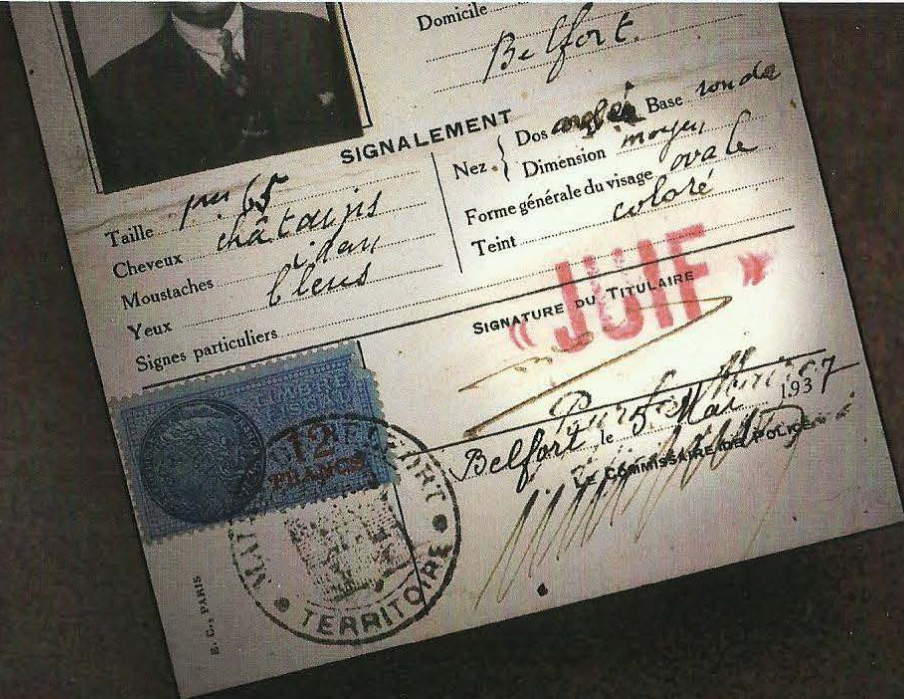 Domicile
Belfort.
SIGNALEMENT
Taille 1m 65
Cheveux châtains
Moustaches idem
Yeux bleus
Signes particuliers
Nez. { Dos Base ronde
Dimension moyen
Forme générale du visage ovale
Teint coloré
« JUIF »
SIGNATURE DU TITULAIRE
Belfort le 5 Mai 1937
LE COMMISSAIRE DE POLICE
TIMBRE
FISCAL
12
FRANCS
TERRITOIRE
E. C., PARIS